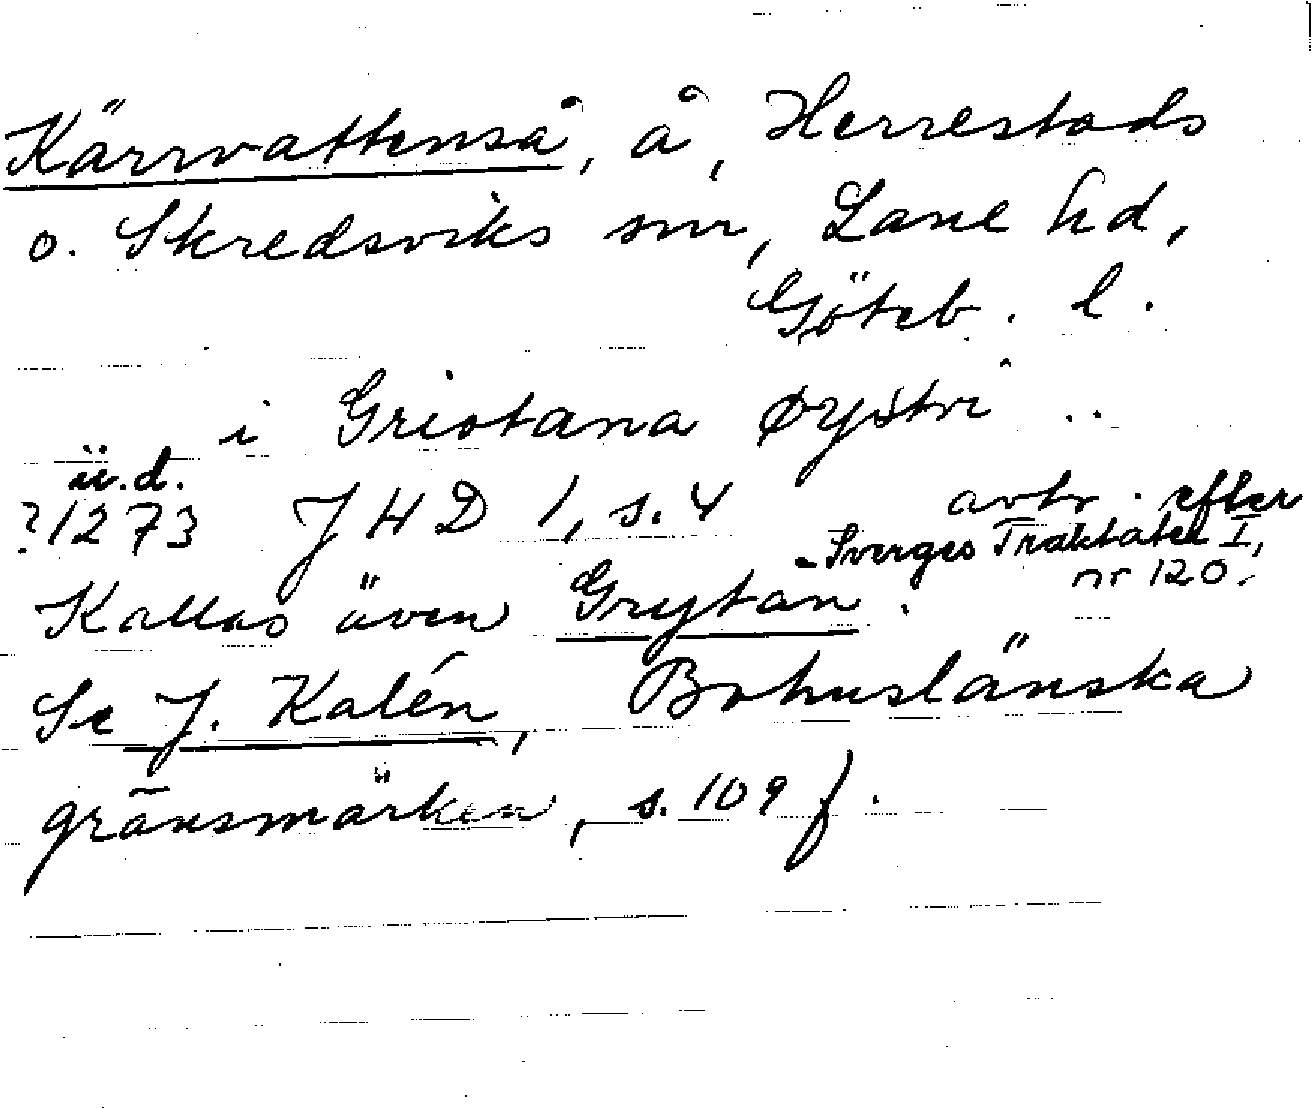 Kärrvattenså, å, Herrestads
o. Skredsviks snr, Lane hd,
Göteb. l.
i Griotana øystri ..
u.d.
?1273 JHD 1, s. 4 avtr. efter
Sverges Traktater I,
nr 120.
Kallas även Grytan.
Se J. Kalén, Bohuslänska
gränsmärken, s. 109 f.